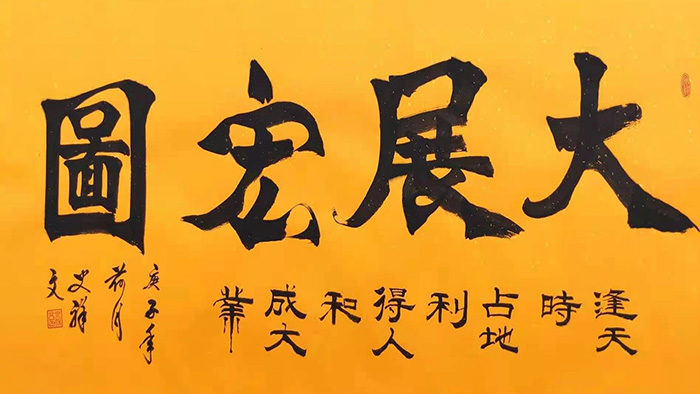 大展宏圖
逢天時占地利得人和成大業
庚子年
荷月
史祥
文